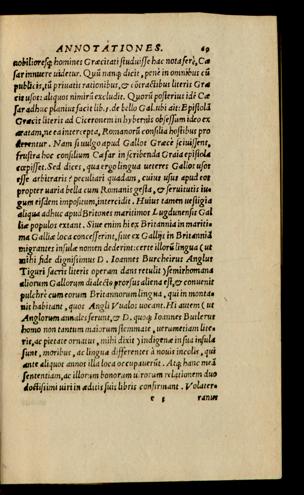 ANNOTATIONES. 69
nobilioresq́ homines Græcitati studuisse hac nota ferè, Cæ
sar innuere uidetur. Quũ nanq́ dicit, penè in omnibus cũ
publicis, tũ priuatis rationibus, & cõtractibus literis Græ
cis usos: aliquos nimirũ excludit. Quorũ posterius idẽ Cæ
sar adhuc planius facit lib. 5. de bello Gal. ubi ait: Epistolã
Græcis literis ad Ciceronem in hybernis obsessum ideo ex
aratam, ne ea intercepta, Romanorũ consilia hostibus pro
derentur. Nam si uulgo apud Gallos Græcè sciuissent,
frustra hoc consilium Cæsar in scribenda Græca epistola
cœpisset. Sed dices, qua ergo lingua ueteres Gallos usos
esse arbitraris? peculiari quadam, cuius usus apud eos
propter uaria bella cum Romanis gesta, & seruitutis iu-
gum eisdem impositum, intercidit. Huius tamen uestigia
aliqua adhuc apud Britones maritimos Lugdunensis Gal
liæ populos extant. Siue enim hi ex Britannia in mariti-
ma Galliæ loca concesserint, siue ex Gallijs in Britanniã
migrantes insulæ nomen dederint: certè illorũ lingua (ut
mihi fide dignissimus D. Ioannes Burcherus Anglus
Tiguri sacris literis operam dans retulit) semiromana
aliorum Gallorum dialecto prorsus aliena est, & conuenit
pulchrè cum eorum Britannorum lingua, qui in monta-
nis habitant, quos Angli Vualos uocant. Hi autem (ut
Anglorum annales ferunt, & D. quoq́ Ioannes Butlerus
homo non tantum maiorum stemmate, uerumetiam lite-
ris, ac pietate ornatus, mihi dixit) indigenæ in sua insula
sunt, moribus, ac lingua differentes à nouis incolis, qui
ante aliquot annos illa loca occupauerũt. Atq́ hanc meã
sententiam, ac illorum bonorum uirorum relationem duo
doctissimi uiri in æditis suis libris confirmant. Volater-
ranus